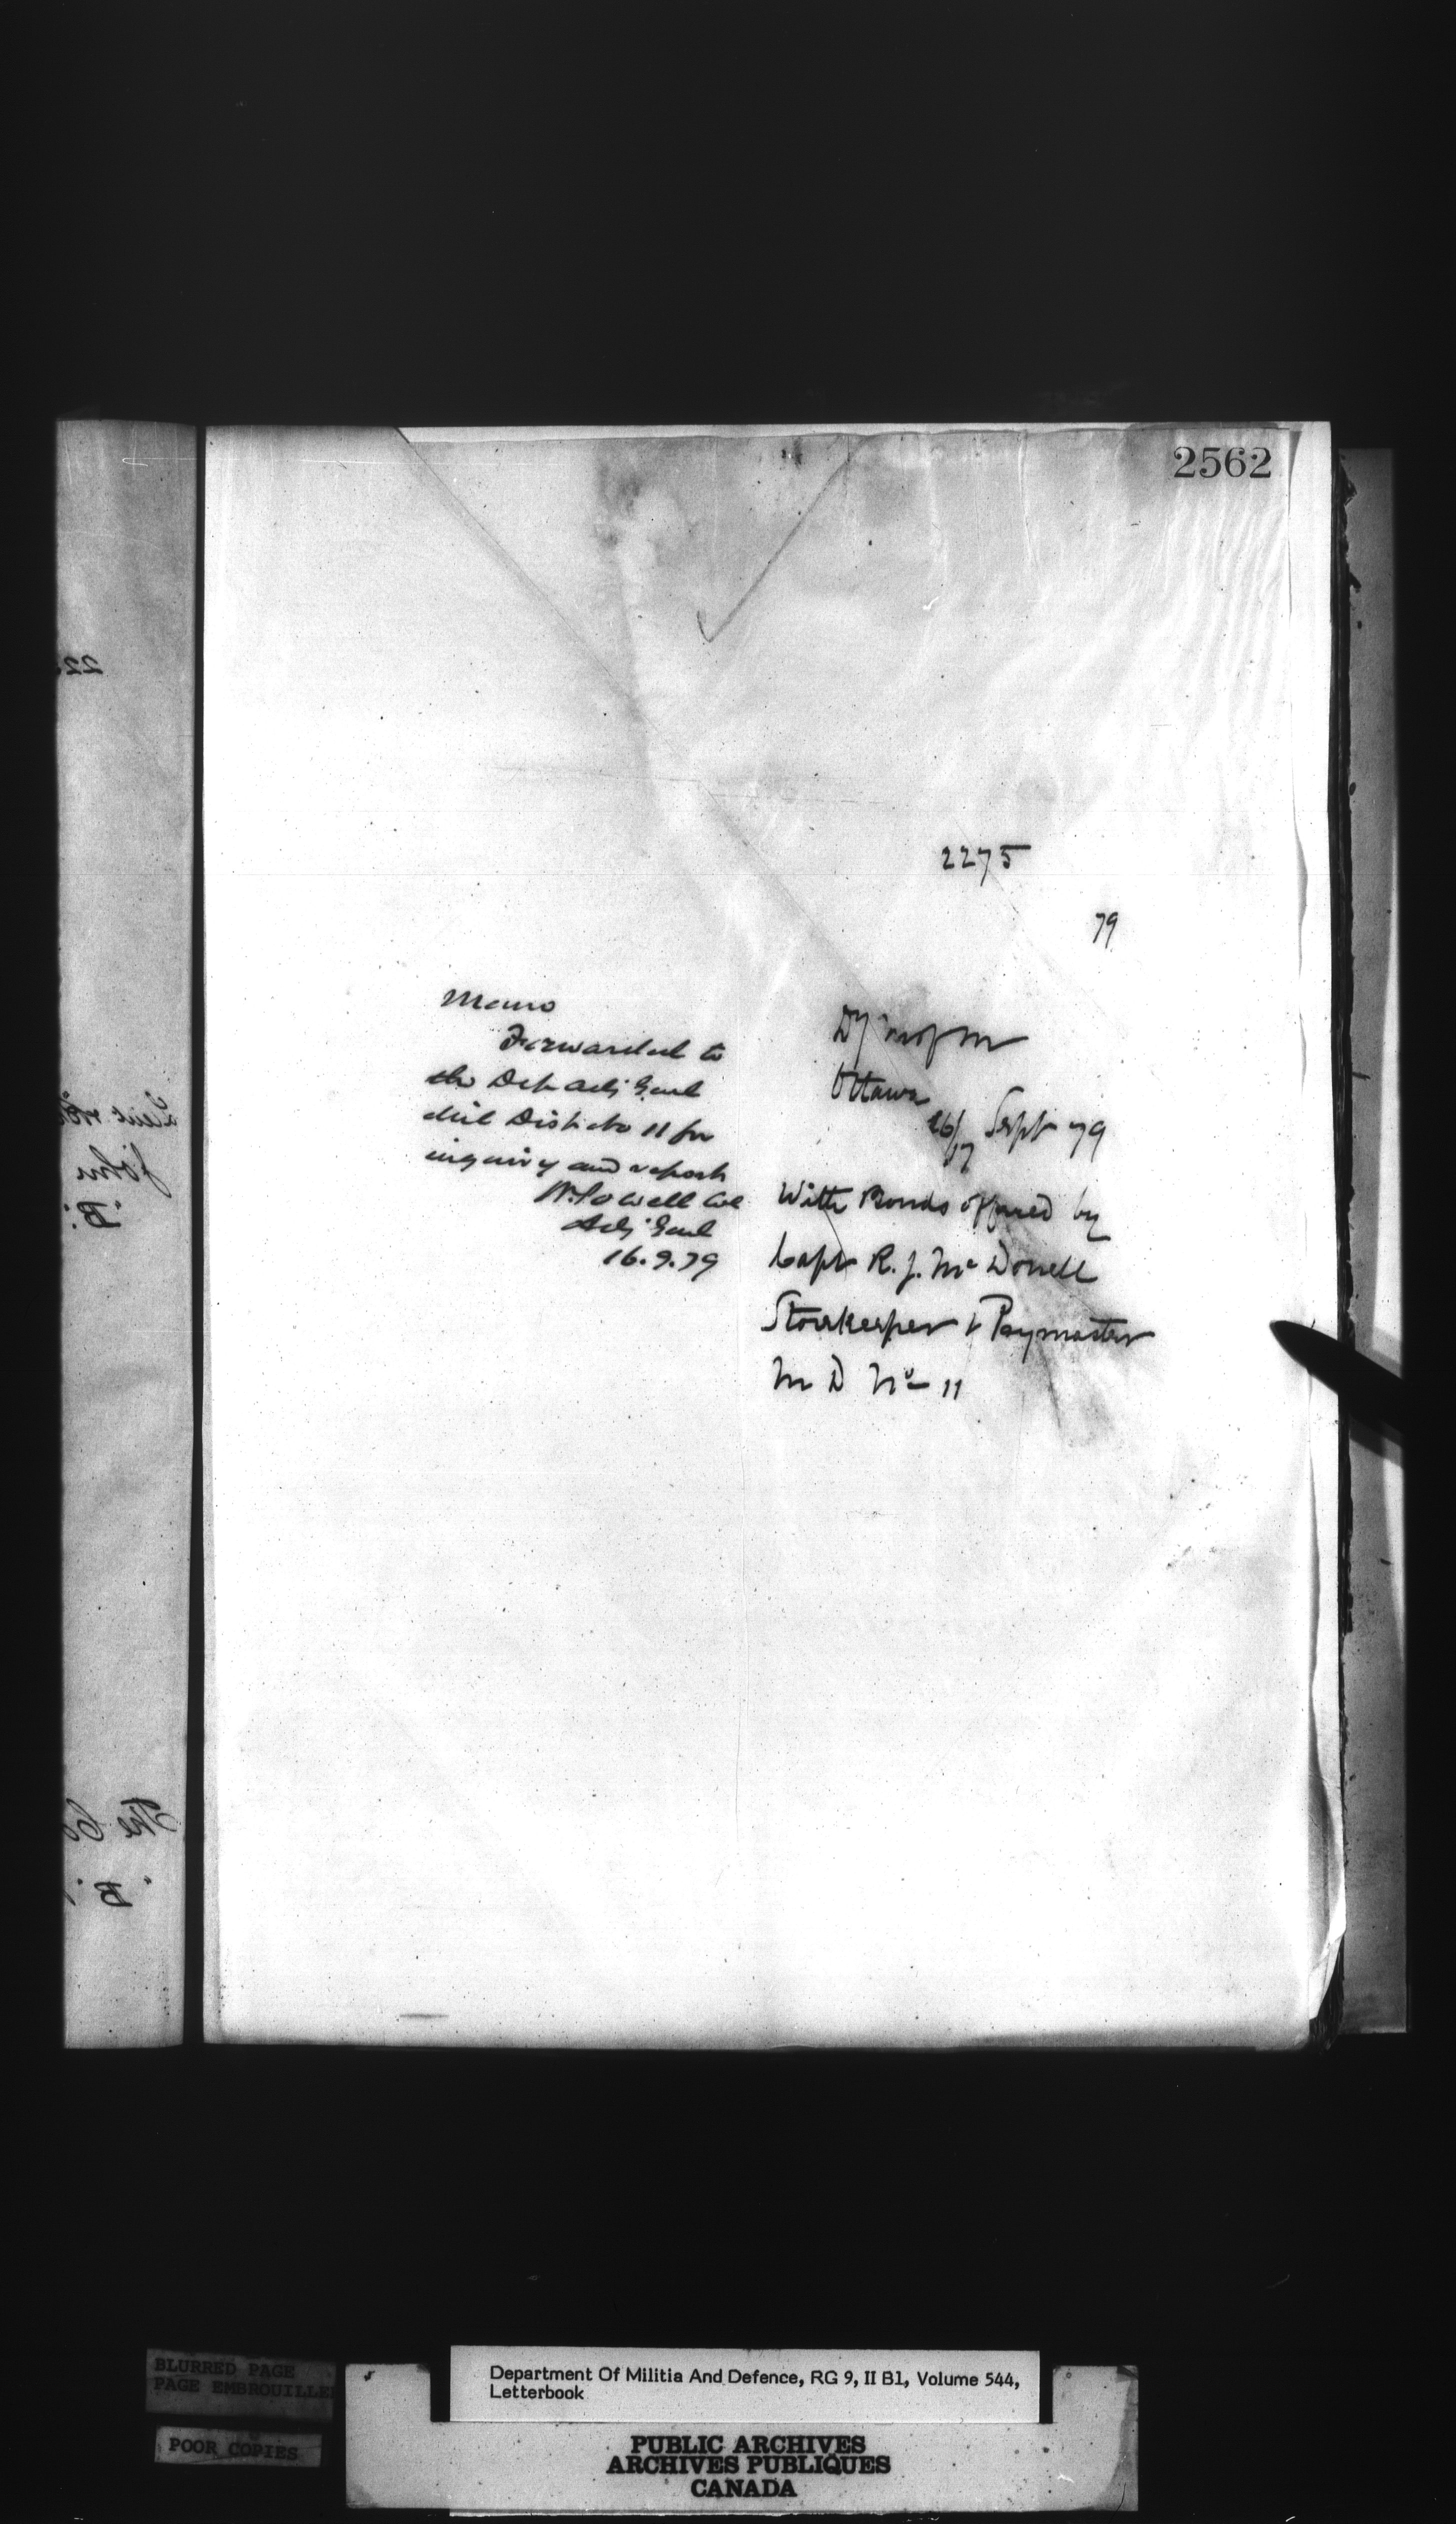 2562
2275
79
Memo
Forwarded to
the Dep Adj Genl
Mil Dist No 11 for
inquiry and report
W. Powell Col
Adj Genl
16.9.79
Dy M of M
Ottawa
16/17 Sept 79
With Bonds offered by
Capt R. J. Mc Donell
Storekeeper & Paymaster
M D No 11
John
"B"
The Co
"B"
BLURRED PAGE
PAGE EMBROUILLEE
POOR COPIES
Department Of Militia And Defence, RG 9, II B1, Volume 544,
Letterbook
PUBLIC ARCHIVES
ARCHIVES PUBLIQUES
CANADA